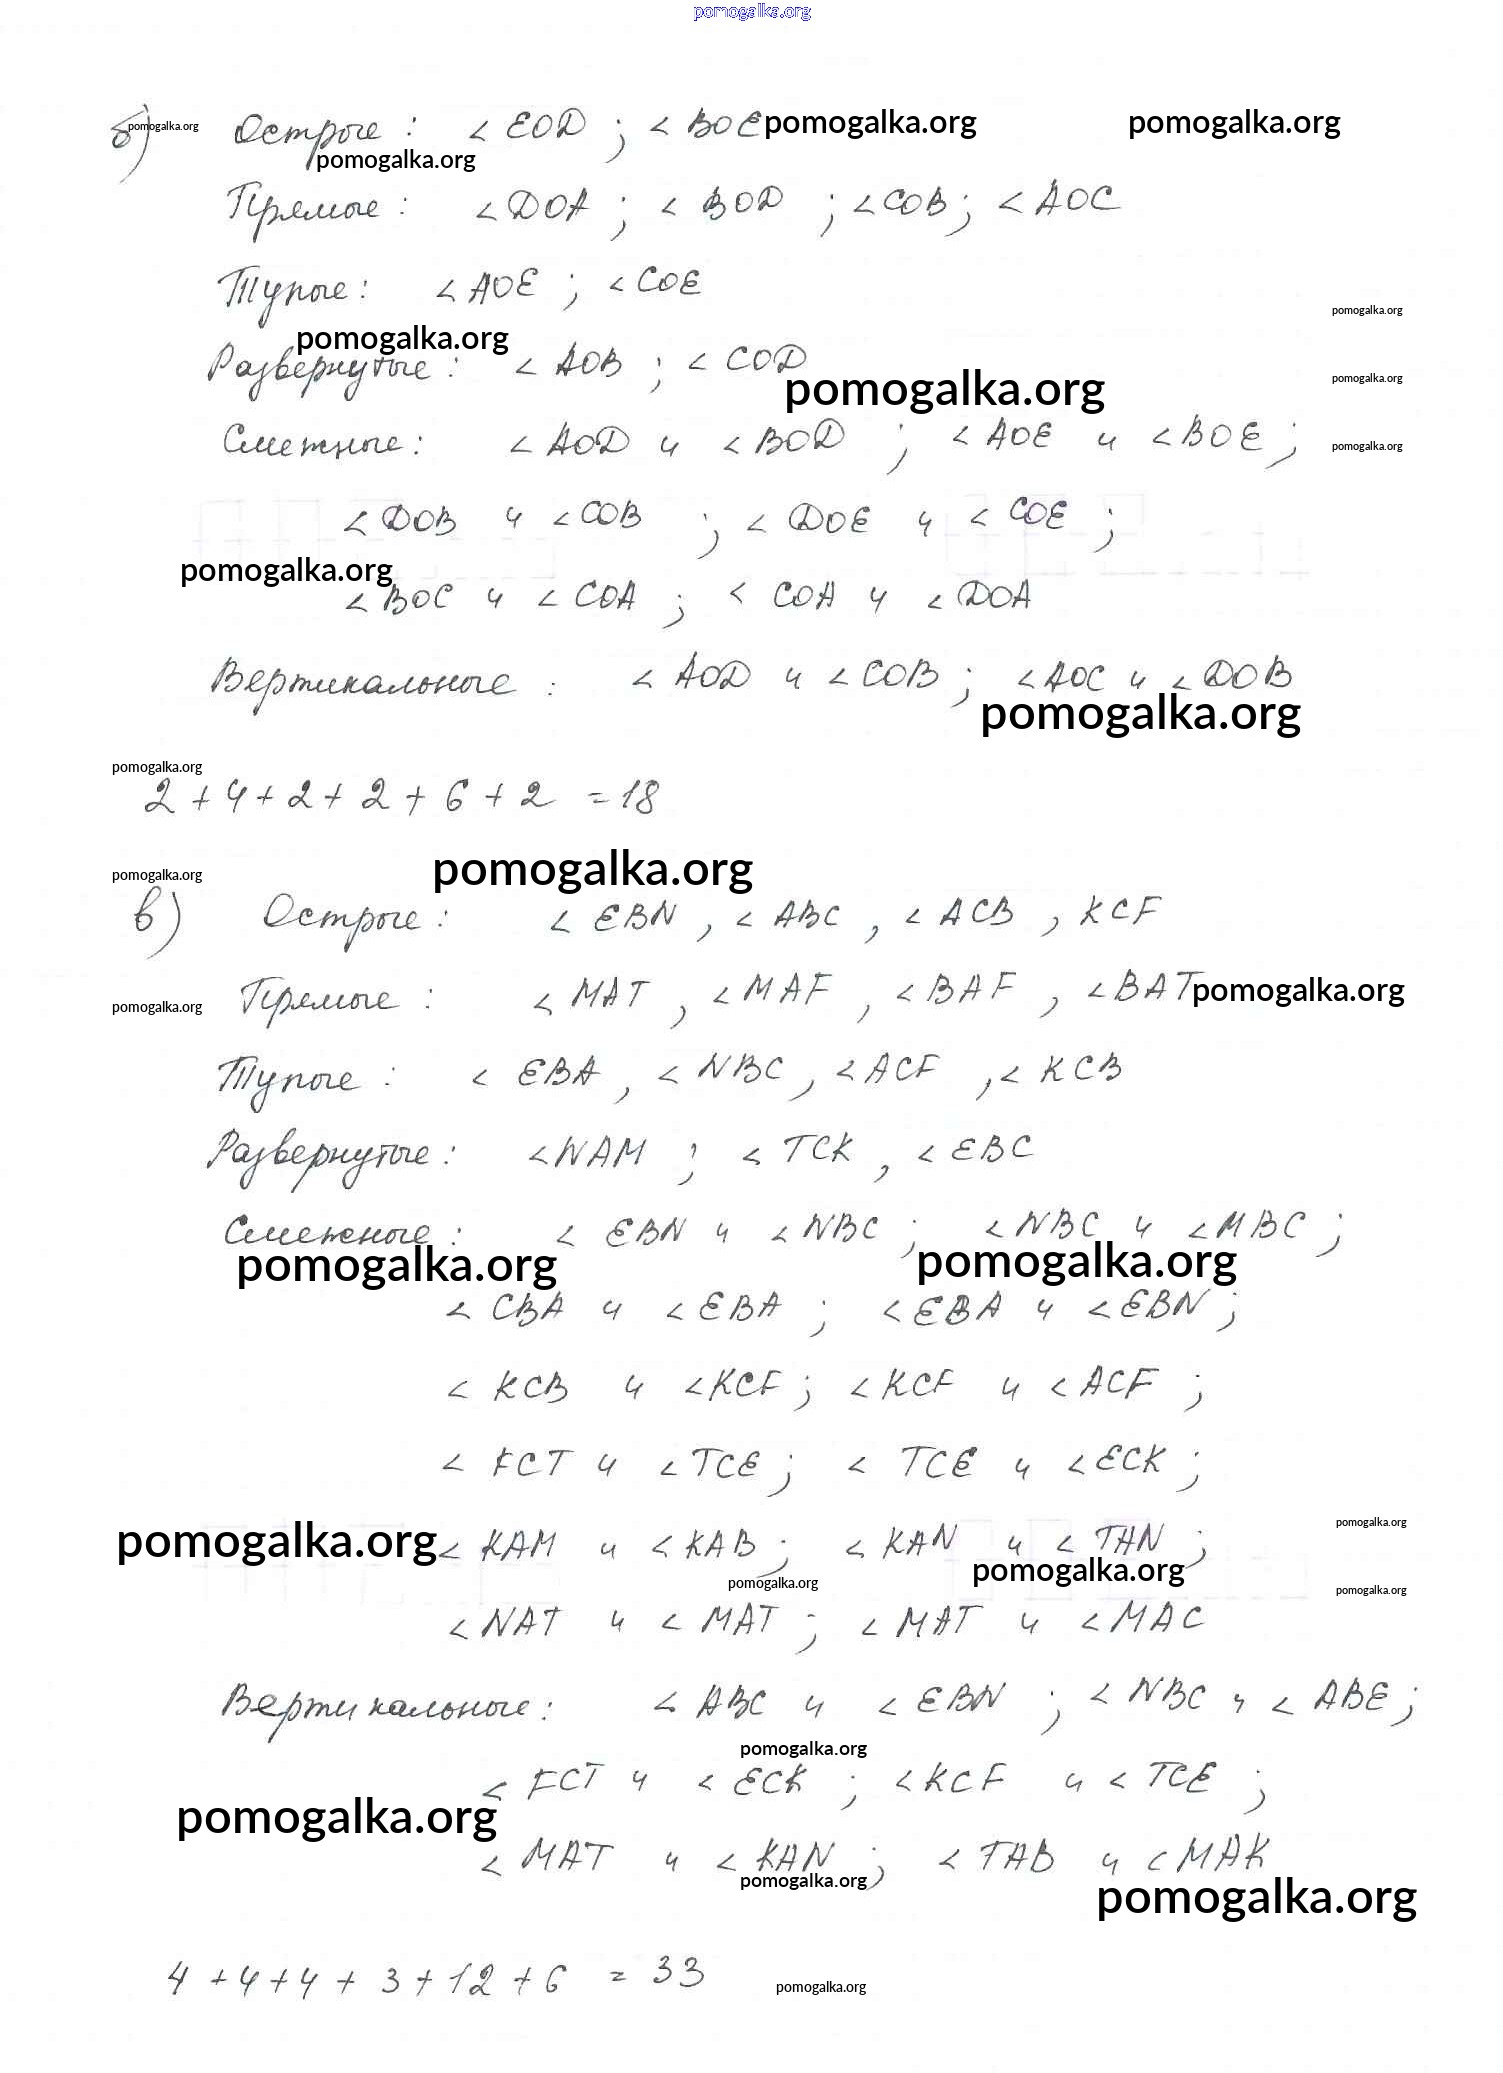 pomogalka.org
б) pomogalka.org Острые: < EOD ; < BOE pomogalka.org pomogalka.org
pomogalka.org
Прямые: < DOA ; < BOD ; < COB ; < AOC
Тупые: < AOE ; < COE
pomogalka.org
pomogalka.org
Развернутые: < AOB ; < COD
pomogalka.org pomogalka.org
Смежные: < AOD и < BOD ; < AOE и < BOE ; pomogalka.org
< DOB и < COB ; < DOE и < COE ;
pomogalka.org
< BOC и < COA ; < COA и < DOA
Вертикальные: < AOD и < COB ; < AOC и < DOB
pomogalka.org
pomogalka.org
2 + 4 + 2 + 2 + 6 + 2 = 18
pomogalka.org
pomogalka.org
в) Острые: < EBN , < ABC , < ACB , KCF
pomogalka.org Прямые: < MAT , < MAF , < BAF , < BAT pomogalka.org
Тупые: < EBA , < NBC , < ACF , < KCB
Развернутые: < NAM ; < TCK , < EBC
Смежные: < EBN и < NBC ; < NBC и < MBC ;
pomogalka.org pomogalka.org
< CBA и < EBA ; < EBA и < EBN ;
< KCB и < KCF ; < KCF и < ACF ;
< FCT и < TCE ; < TCE и < ECK ;
pomogalka.org
pomogalka.org < KAM и < KAB ; < KAN и < TAN ;
pomogalka.org
pomogalka.org pomogalka.org
< NAT и < MAT ; < MAT и < MAC
Вертикальные: < ABC и < EBN ; < NBC и < ABE ;
pomogalka.org
< FCT и < ECK ; < KCF и < TCE ;
pomogalka.org
< MAT и < KAN ; < TAB и < MAK
pomogalka.org
pomogalka.org
4 + 4 + 4 + 3 + 12 + 6 = 33
pomogalka.org